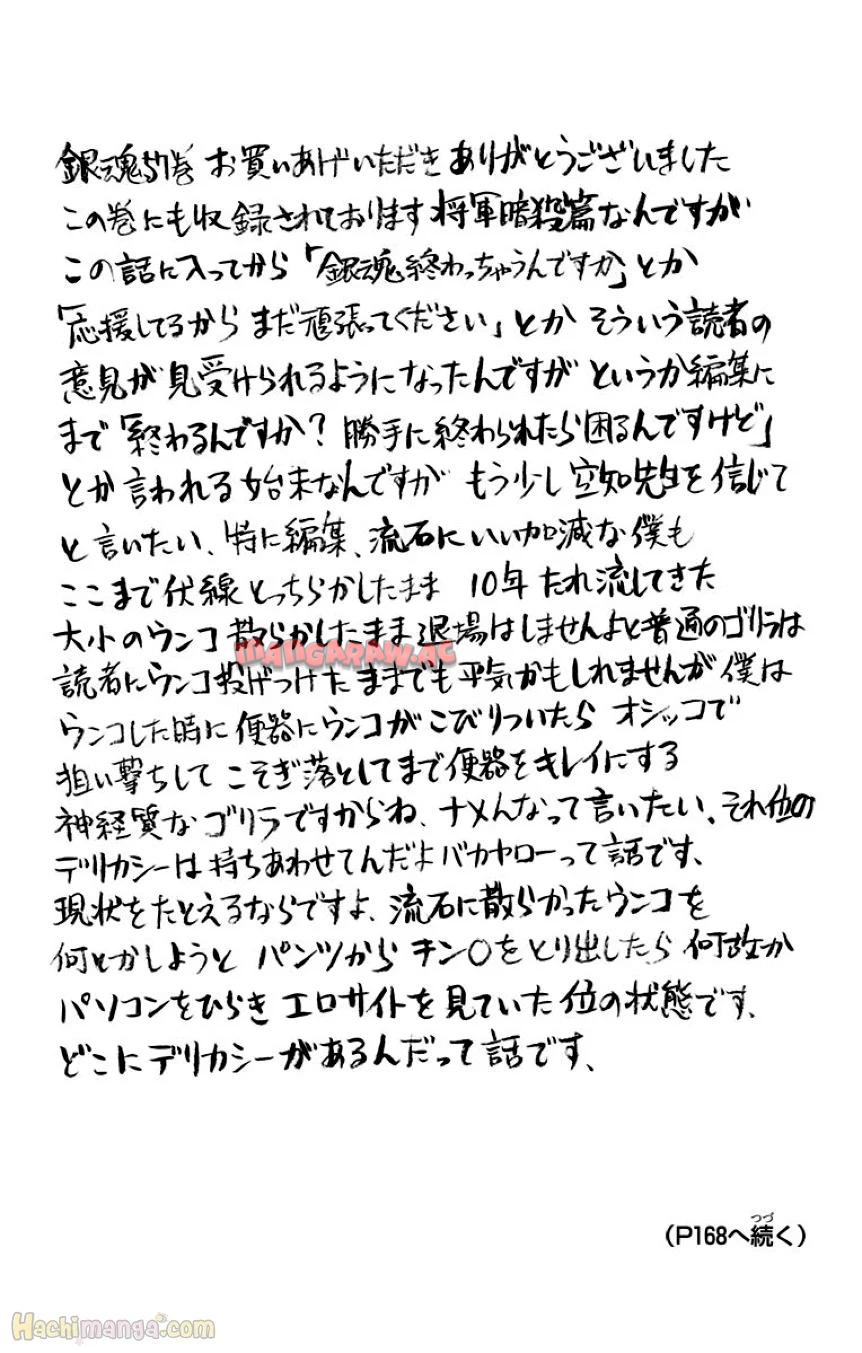 銀魂57巻 お買いあげいただき ありがとうございました
この巻にも収録されております 将軍暗殺篇なんですが
この話に入ってから「銀魂終わっちゃうんですか」とか
「応援してるから まだ頑張ってください」とか そういう読者の
意見が見受けられるようになったんですが というか編集に
まで「終わるんですか？ 勝手に終わられたら困るんですけど」
とか言われる始末なんですが もう少し空知先生を信じて
と言いたい、特に編集、流石にいい加減な僕も
ここまで伏線とっちらかしたまま 10年 たれ流してきた
大小のウンコ 散らかしたまま退場はしませんよと普通のゴリラは
mangaraw.ac
読者にウンコ投げつけたままでも平気かもしれませんが僕は
ウンコした時に便器にウンコがこびりついたら オシッコで
狙い撃ちして こそぎ落としてまで便器をキレイにする
神経質なゴリラですからね、ナメんなって言いたい。それ位の
デリカシーは持ちあわせてんだよバカヤローって話です、
現状をたとえるならですよ、流石に散らかったウンコを
何とかしようと パンツから チン〇をとり出したら 何故か
パソコンをひらき エロサイトを見ていた位の状態です、
どこにデリカシーがあるんだって話です、
（P168へ続く）
つづ
Hachimanga.com